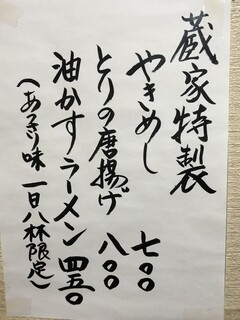 蔵家特製
やきめし 七〇〇
とりの唐揚げ 八〇〇
油かすラーメン 四五〇
(あっさり味 一日八杯限定)